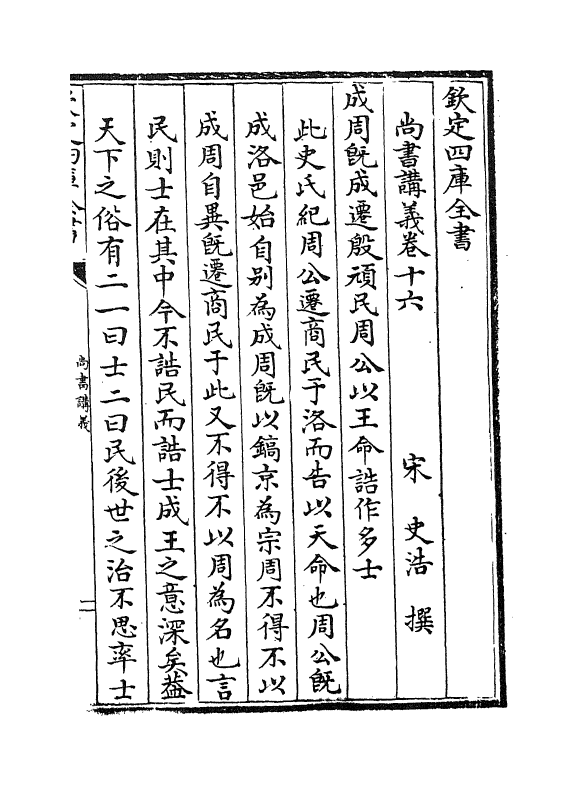 欽定四庫全書
尚書講義卷十六
宋 史浩 撰
成周既成遷殷頑民周公以王命誥作多士
此史氏紀周公遷商民于洛而告以天命也周公既
成洛邑始自别為成周既以鎬京為宗周不得不以
成周自異既遷商民于此又不得不以周為名也言
民則士在其中今不誥民而誥士成王之意深矣葢
天下之俗有二一曰士二曰民後世之治不思率士
尚書講義